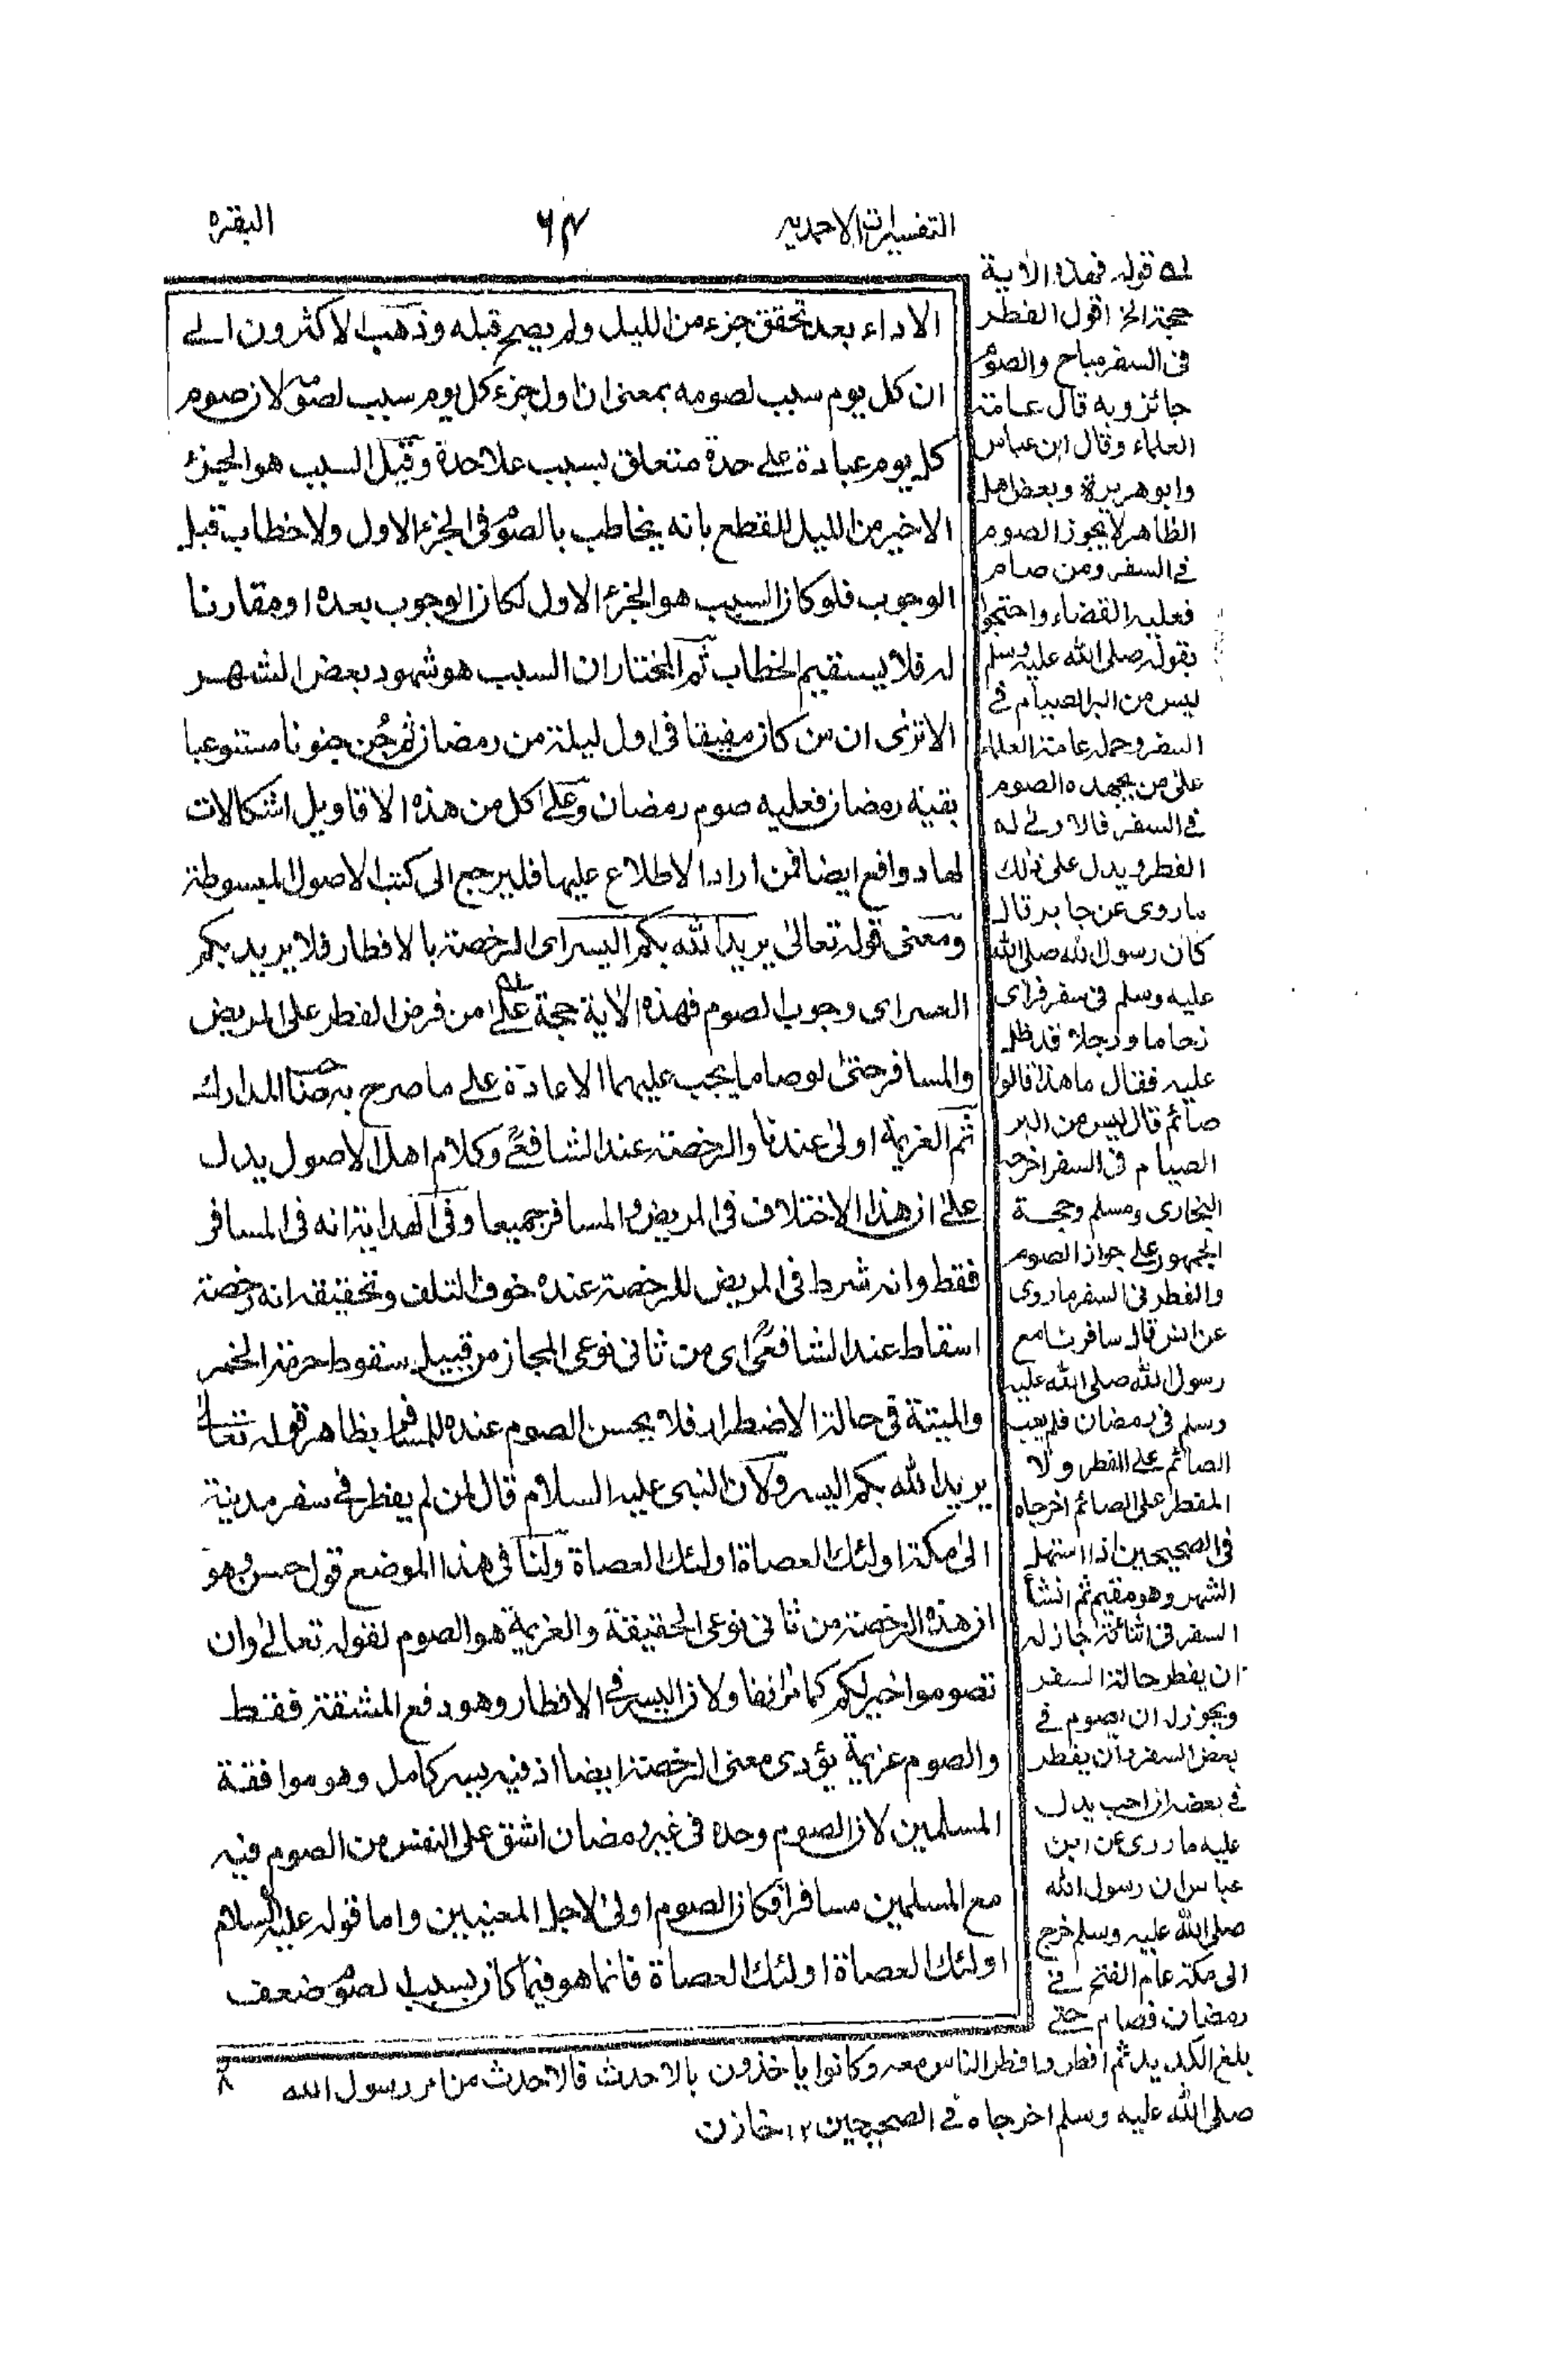 التفسيرات الاحمديہ
۶۴
البقره
الاداء بعد تحقق جزء من الليل ولم يصح قبله وذهب الاكثرون الے
ان كل يوم سبب لصومه بمعنى ان اول جزء كل يوم سبب لصومٍ لان صوم
كل يوم عبادة علے حدة متعلق بسبب علاحدة وقيل السبب هو الجزء
الاخير من الليل للقطع بانه يخاطب بالصوم فى الجزء الاول ولا خطاب قبل
الوجوب فلو كان السبب هو الجزء الاول لكان الوجوب بعده او مقارنا
له فلا يستقيم الخطاب ثم المختار ان السبب هو شهود بعض الشهر
الا ترٰى ان من كان مفيقا فى اول ليلة من رمضان ثم جُن جنونا مستوعبا
بقية رمضان فعليه صوم رمضان وعلے كل من هذه الاقاويل اشكالات
لها دوافع ايضا فمن اراد الاطلاع عليها فليرجع الى كتب الاصول المبسوطة
ومعنى قوله تعالىٰ يريد الله بكم اليسر اى الرخصة بالافطار فلا يريد بكم
العسر اى وجوب الصوم فهذه الاٰية حجة علے من فرض الفطر على المريض
والمسافر حتىٰ لو صاما يجب عليهما الاعادة علے ما صرح به صاحب المدارك
ثم العزيمة اولىٰ عندنا والرخصة عند الشافعيؒ وكلام اهل الاصول يدل
علےٰ ان هذا الاختلاف فى المريض والمسافر جميعا وفى الهداية انه فى المسافر
فقط وانه شرط فى المريض للرخصة عنده خوف التلف وتحقيقه انه رخصة
اسقاط عند الشافعيؒ اى من ثانى نوعى المجاز من قبيل سقوط حرمة الخمر
والميتة فى حالة الاضطرار فلا يحسن الصوم عنده للمسافر بظاهر قوله تعالےٰ
يريد الله بكم اليسر ولان النبى عليه السلام قال لمن لم يفطر فے سفر مدينة
الىٰ مكة اولئك العصاة اولئك العصاة ولنا فى هذا الموضع قول حسن وهو
ان هذه الرخصة من ثانى نوعى الحقيقة والعزيمة هو الصوم لقوله تعالےٰ وان
تصوموا خير لكم كما مر انفا ولان اليسر فے الافطار وهو دفع المشقة فقط
والصوم عزيمة يؤدى معنى الرخصة ايضا اذ فيه يسر كامل وهو موافقة
المسلمين لان الصوم وحده فى غير رمضان اشق على النفس من الصوم فيه
مع المسلمين مسافرا فكان الصوم اولىٰ لاجل المعنيين واما قوله عليه السلام
اولئك العصاة اولئك العصاة فانما هو فيما كان بسبب لصوم ضعف
لـه قوله فهذه الاٰية
حجة الخ اقول الفطر
فى السفر مباح والصوم
جائز وبه قال عامة
العلماء وقال ابن عباس
وابو هريرة وبعض اهل
الظاهر لا يجوز الصوم
فے السفر ومن صام
فعليه القضاء واحتجوا
بقوله صلى الله عليه وسلم
ليس من البر الصيام فے
السفر وحمله عامة العلماء
على من يجهده الصوم
فے السفر فالاولےٰ له
الفطر ويدل على ذلك
ما روى عن جابر قال
كان رسول الله صلى الله
عليه وسلم فى سفر فراى
زحاما ورجلا قد ظلل
عليه فقال ما هذا قالوا
صائم قال ليس من البر
الصيام فى السفر اخرجه
البخارى ومسلم وحجة
الجمهور علے جواز الصوم
والفطر فى السفر ما روى
عن انس قال سافرنا مع
رسول الله صلى الله عليه
وسلم فى رمضان فلم يعب
الصائم علے المفطر ولا
المفطر على الصائم اخرجاه
فى الصحيحين اذا استهل
الشهر وهو مقيم ثم انشأ
السفر فى اثنائه جاز له
ان يفطر حالة السفر
ويجوز له ان يصوم فے
بعض السفر وان يفطر
فے بعضه ان احب يدل
عليه ما روى عن ابن
عباس ان رسول الله
صلى الله عليه وسلم خرج
الى مكة عام الفتح فے
رمضان فصام حتے
بلغ الكديد ثم افطر وافطر الناس معه وكانوا ياخذون بالاحدث فالاحدث من امر رسول الله
صلى الله عليه وسلم اخرجاه فے الصحيحين ١٢ خازن